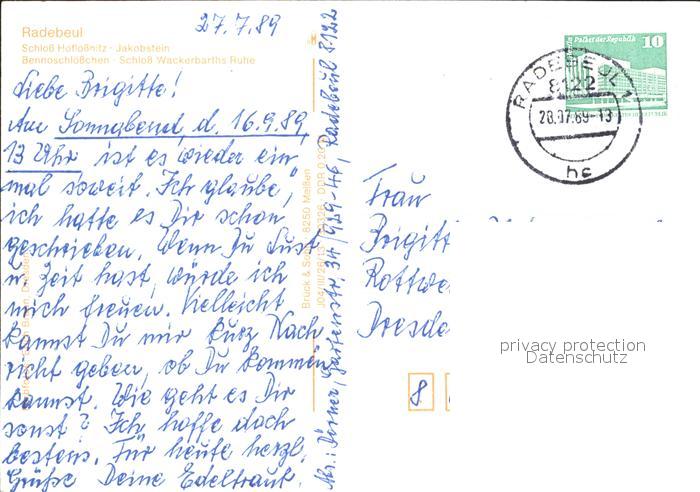 27.7.89
Radebeul
Schloß Hoflößnitz · Jakobstein
Bennoschlößchen · Schloß Wackerbarths Ruhe
Liebe Brigitte!
Am Sonnabend, d. 16.9.89,
13 Uhr ist es wieder ein-
mal soweit. Ich glaube,
ich hatte es Dir schon
geschrieben. Wenn Du Lust
u. Zeit hast, würde ich
mich freuen. Vielleicht
kannst Du mir kurz Nach
richt geben, ob Du kommen
kannst. Wie geht es Dir
sonst? Ich hoffe doch
bestens. Für heute herzl.
Grüße Deine Edeltraut.
Gartenstr. 34 Radebeul 8122
Brück & Sohn 8250 Meißen
Palast der Republik 10
RADEBEUL 1
8122
28.07.89-13
hc
Frau
Brigitt
Rottwe
Dresde
8
privacy protection
Datenschutz